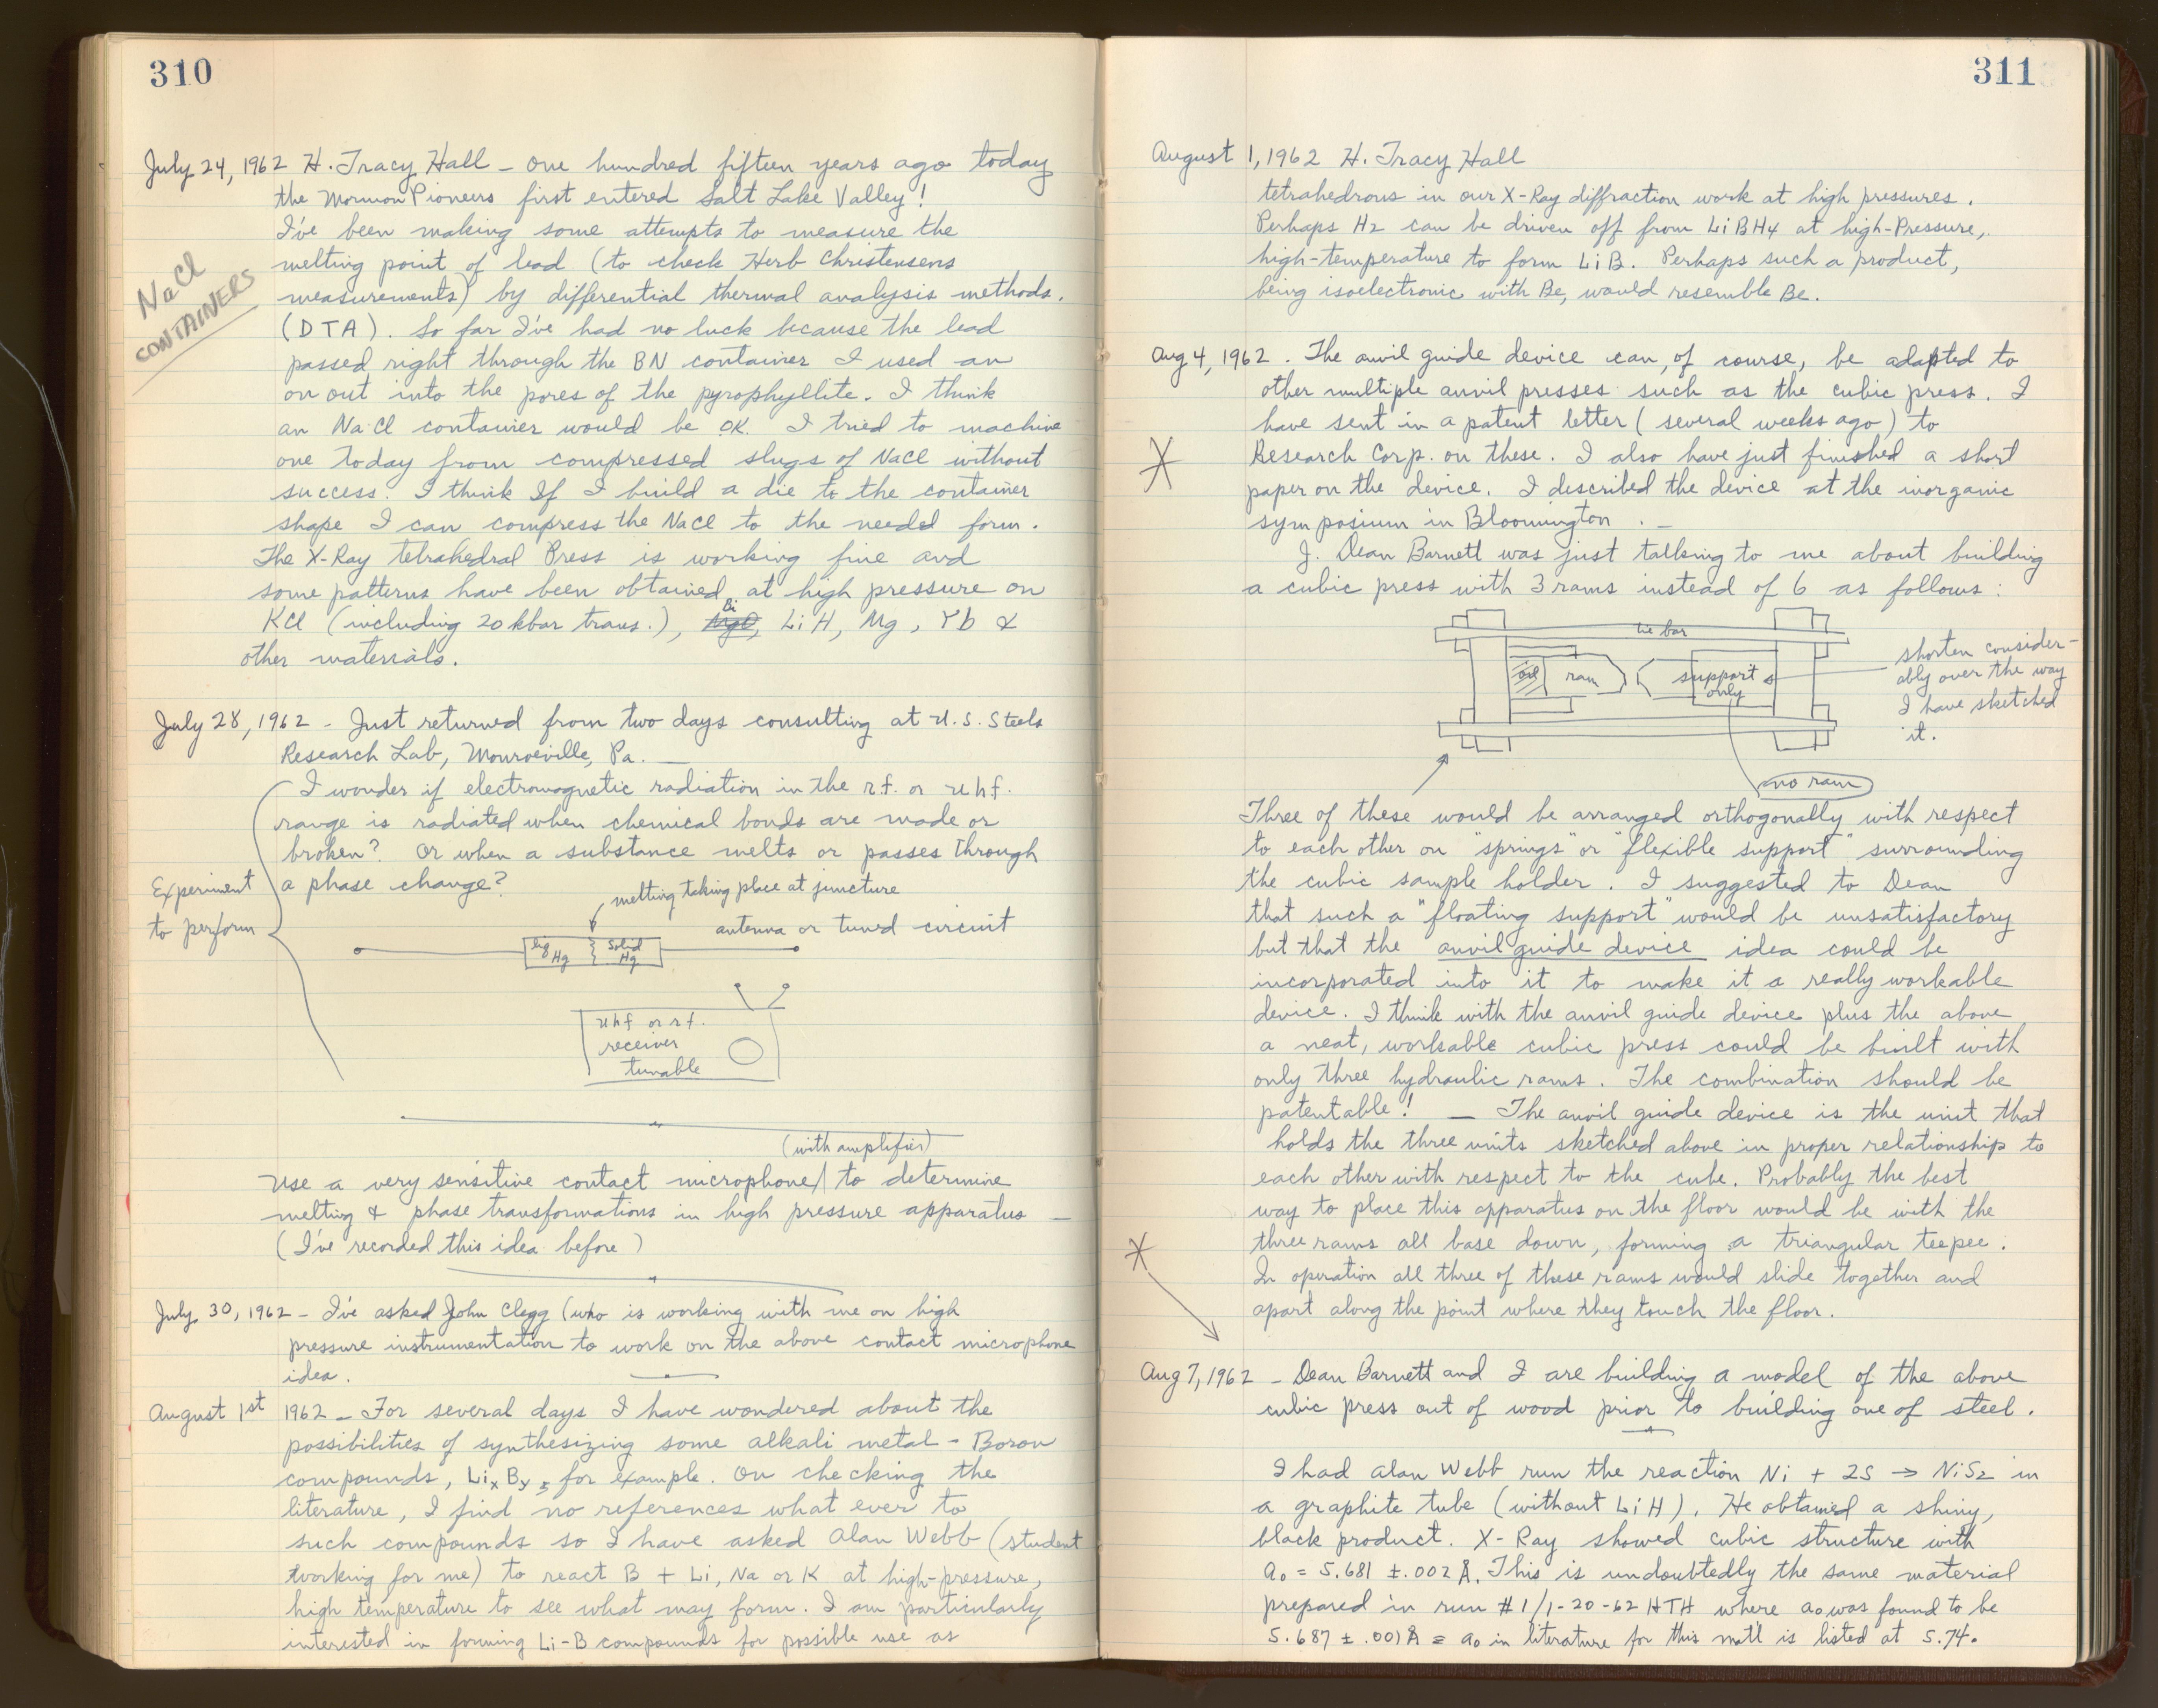 310
July 24, 1962 H. Tracy Hall - One hundred fifteen years ago today
the Mormon Pioneers first entered Salt Lake Valley!
I've been making some attempts to measure the
melting point of lead (to check Herb Christensens
measurements) by differential thermal analysis methods.
(DTA). So far I've had no luck because the lead
passed right through the BN container I used an
on out into the pores of the pyrophyllite. I think
an NaCl container would be OK. I tried to machine
one today from compressed slugs of NaCl without
success. I think If I build a die to the container
shape I can compress the NaCl to the needed form.
The X-Ray tetrahedral Press is working fine and
some patterns have been obtained at high pressure on
KCl (including 20 kbar trans.), Bi, LiH, Mg, Yb &
other materials.
NaCl
CONTAINERS
July 28, 1962 - Just returned from two days consulting at U.S. Steels
Research Lab, Monroeville, Pa. —
I wonder if electromagnetic radiation in the r.f. or uhf.
range is radiated when chemical bonds are made or
broken? Or when a substance melts or passes through
a phase change?
Experiment
to perform
melting taking place at juncture
antenna or tuned circuit
liq Hg
Solid Hg
uhf or r.f.
receiver
tunable
(with amplifier)
Use a very sensitive contact microphone to determine
melting & phase transformations in high pressure apparatus —
(I've recorded this idea before)
July 30, 1962 - I've asked John Clegg (who is working with me on high
pressure instrumentation to work on the above contact microphone
idea.
August 1st 1962 - For several days I have wondered about the
possibilities of synthesizing some alkali metal - Boron
compounds, LixBy, for example. On checking the
literature, I find no references what ever to
such compounds so I have asked Alan Webb (student
working for me) to react B + Li, Na or K at high-pressure,
high temperature to see what may form. I am particularly
interested in forming Li-B compounds for possible use as
311
August 1, 1962 H. Tracy Hall
tetrahedrons in our X-Ray diffraction work at high pressures.
Perhaps H2 can be driven off from LiBH4 at high-Pressure,
high-temperature to form LiB. Perhaps such a product,
being isoelectronic with Be, would resemble Be.
Aug 4, 1962. The anvil guide device can, of course, be adapted to
other multiple anvil presses such as the cubic press. I
have sent in a patent letter (several weeks ago) to
Research Corp. on these. I also have just finished a short
paper on the device. I described the device at the inorganic
symposium in Bloomington. —
J. Dean Barnett was just talking to me about building
a cubic press with 3 rams instead of 6 as follows:
tie bar
oil
ram
support
only
shorten consider-
ably over the way
I have sketched
it.
no ram
Three of these would be arranged orthogonally with respect
to each other on "springs" or "flexible support" surrounding
the cubic sample holder. I suggested to Dean
that such a "floating support" would be unsatisfactory
but that the anvil guide device idea could be
incorporated into it to make it a really workable
device. I think with the anvil guide device plus the above
a neat, workable cubic press could be built with
only three hydraulic rams. The combination should be
patentable! — The anvil guide device is the unit that
holds the three units sketched above in proper relationship to
each other with respect to the cube. Probably the best
way to place this apparatus on the floor would be with the
three rams all base down, forming a triangular teepee.
In operation all three of these rams would slide together and
apart along the point where they touch the floor.
Aug 7, 1962 - Dean Barnett and I are building a model of the above
cubic press out of wood prior to building one of steel.
I had Alan Webb run the reaction Ni + 2S → NiS2 in
a graphite tube (without LiH). He obtained a shiny,
black product. X-Ray showed cubic structure with
a0 = 5.681 ±.002 Å. This is undoubtedly the same material
prepared in run #1/1-20-62 HTH where a0 was found to be
5.687 ± .001 Å = a0 in literature for this mat'l is listed at 5.74.